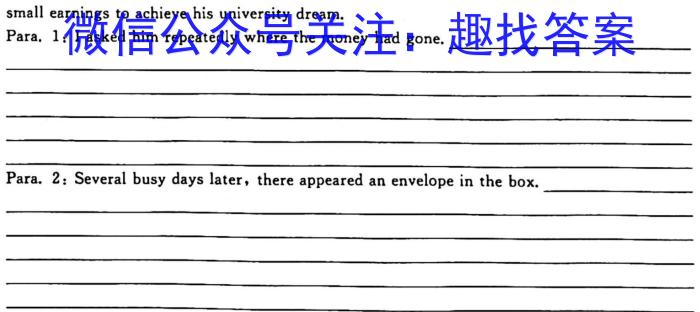 small earnings to achieve his university dream.
微信公众号关注：趣找答案
Para. 1: I asked him repeatedly where the money had gone.
Para. 2: Several busy days later, there appeared an envelope in the box.